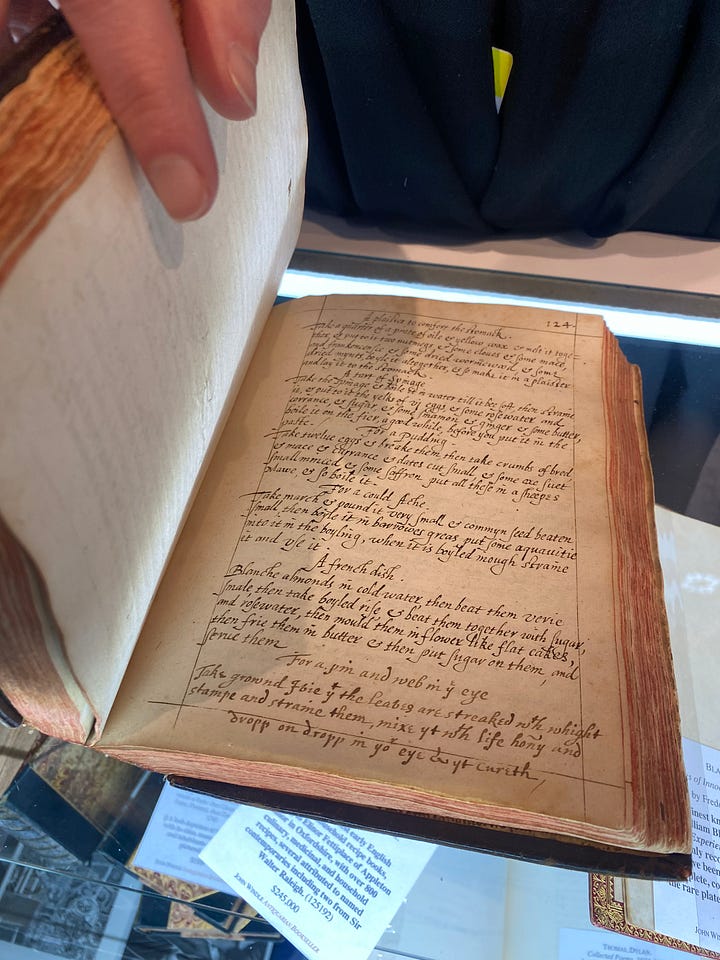 124
A plaister to comfort the stomack.
Take a quarter of a pinte of oile & yellow wax & melt it toge=
ther, & put to it two nutmegs & some cloves & some mace,
and frankencense & some dried wormewood, & some
dried mynts, boyle it altogether, & so make it in a plaister
and lay it to the stomack.
A tart of Spinage
Take the spinage & boile it in water till it bee soft, then straine
it, & put to it the yelks of vj eggs, & some rosewater and
corrance, & sugar & some sinamon & ginger & some butter,
boile it on the fier, a good while, before you put it in the
paste.
For a pudding
Take twelve eggs & breake them, then take crumbs of bred
& mace & currance & dates cut small & some oxe suet
small minced & some saffron, put all these in a sheepes
& so boile it.
For a could Ache.
Take march & pound it very small & commyn seed beaten
small then boyle it in barrowes greas put some aquavitie
into it in the boyling, when it is boyled inough straine
it and use it.
A french dish.
Blanche almonds in cold water, then beat them verie
smale, then take boyled rise & beat them together with sugar,
and rosewater, then mould them in flower like flat cakes,
then frie them in butter & then put sugar on them, and
serve them
For a pin and web in ye eye
Take grownd Ivie yt the leaves are streaked wth whight
stampe and straine them, mixe yt wth life hony and
dropp on dropp in yor eye & yt cureth,
early English
household recipe books,
Elinor Fettiplace of Appleton
in Oxfordshire, with over 800
culinary, medicinal, and household
recipes, several attributed to named
contemporaries including two from Sir
Walter Raleigh. (125192)
$245,000
John Windle Antiquarian Bookseller
Bla
of Innoc
by Fred
inest kn
illiam Bl
Experie
nly rec
ve been
plete, co
the rare plate
John Win
Thomas, Dylan.
Collected Poems